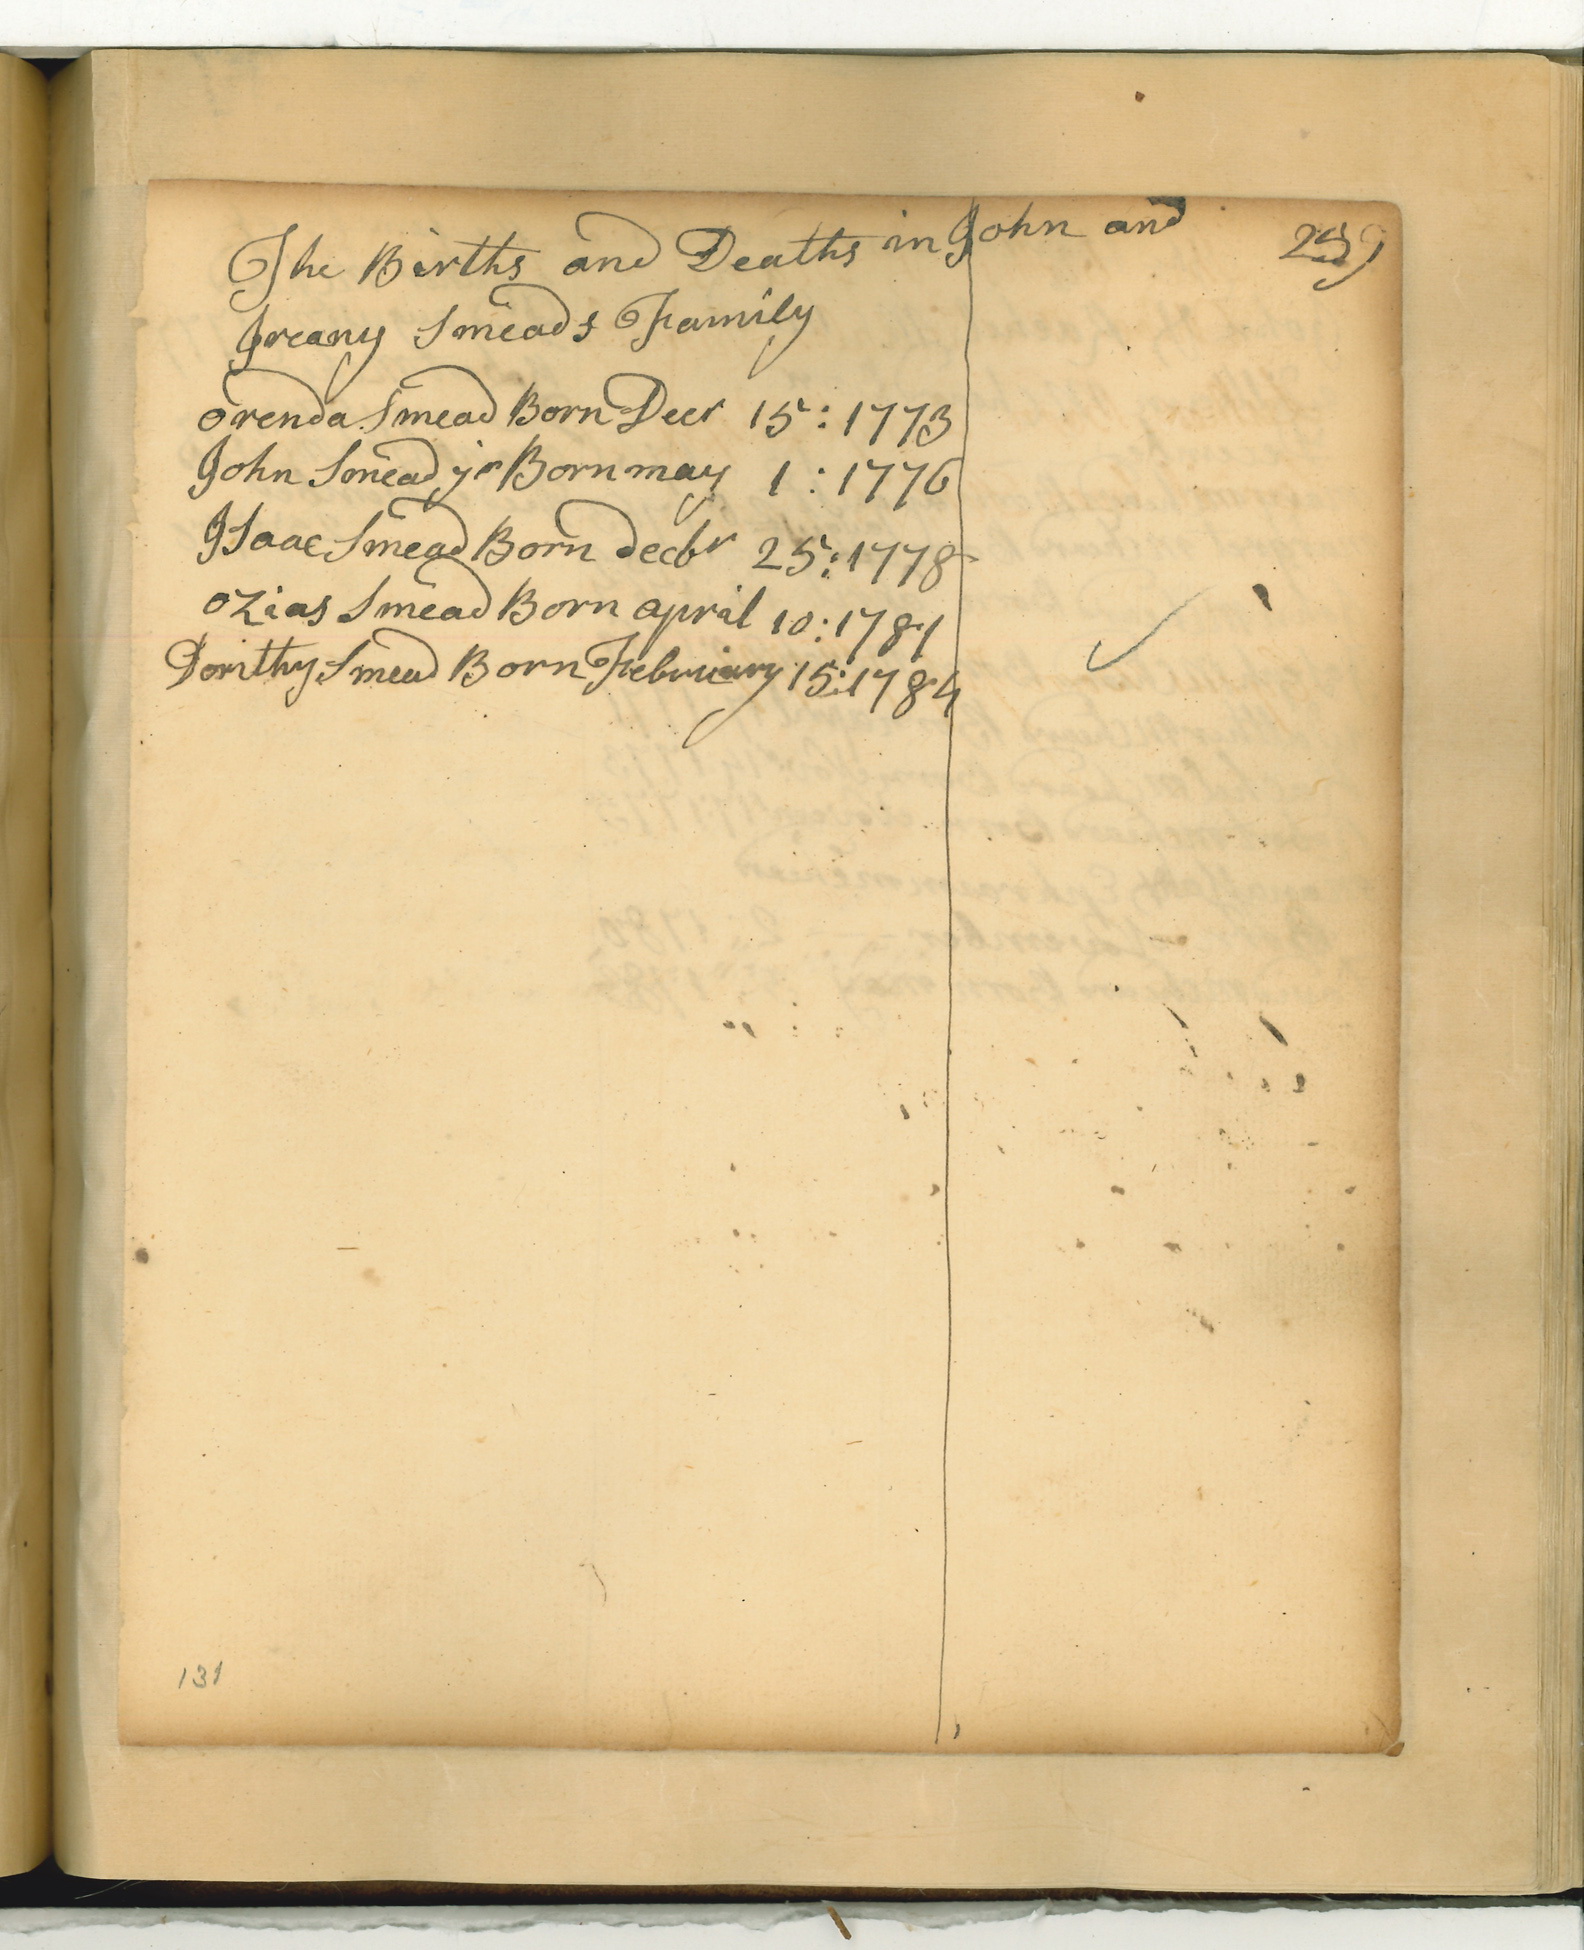 The Births and Deaths in John and
Jreany Smeads Family
orenda Smead Born Decr 15: 1773
John Smead jr Born may 1: 1776
ISaac Smead Born decbr 25: 1778
oZias Smead Born april 10: 1781
Dorithy Smead Born February 15: 1784
131